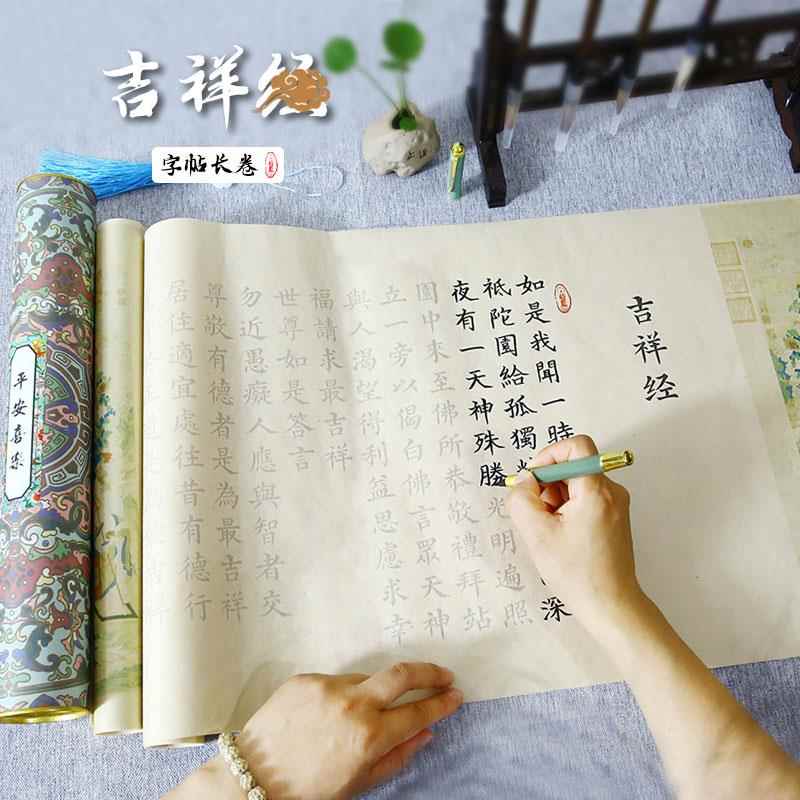 吉祥经
字帖长卷
平安喜乐
吉祥经
如是我聞一時
祇陀園給孤獨 深
夜有一天神殊勝光明遍照
園中來至佛所恭敬禮拜站
立一旁以偈白佛言眾天神
與人渴望得利益思慮求幸
福請求最吉祥
世尊如是答言
勿近愚癡人應與智者交
尊敬有德者是為最吉祥
居住適宜處往昔有德行